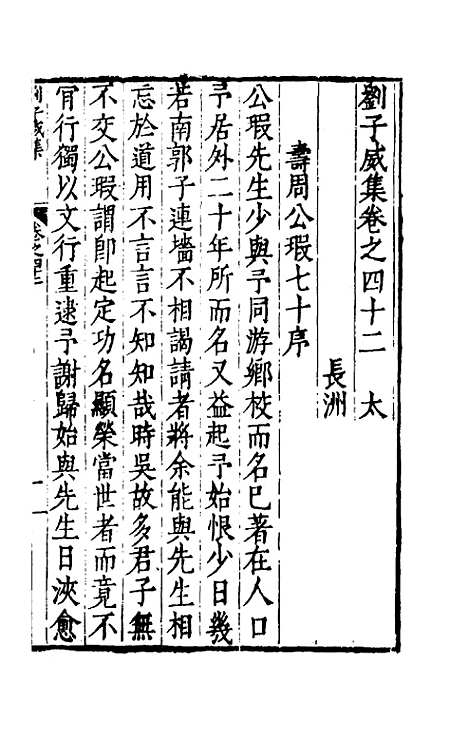 劉子威集卷之四十二　太
長洲
壽周公瑕七十序
公瑕先生少與予同游鄉校而名已著在人口
予居外二十年所而名又益起予始恨少日幾
若南郭子連墻不相謁請者將余能與先生相
忘於道用不言言不知知哉時吳故多君子無
不交公瑕謂卽起定功名顯榮當世者而竟不
宵行獨以文行重逮予謝歸始與先生日浹愈
劉子威集
卷之四十二
一